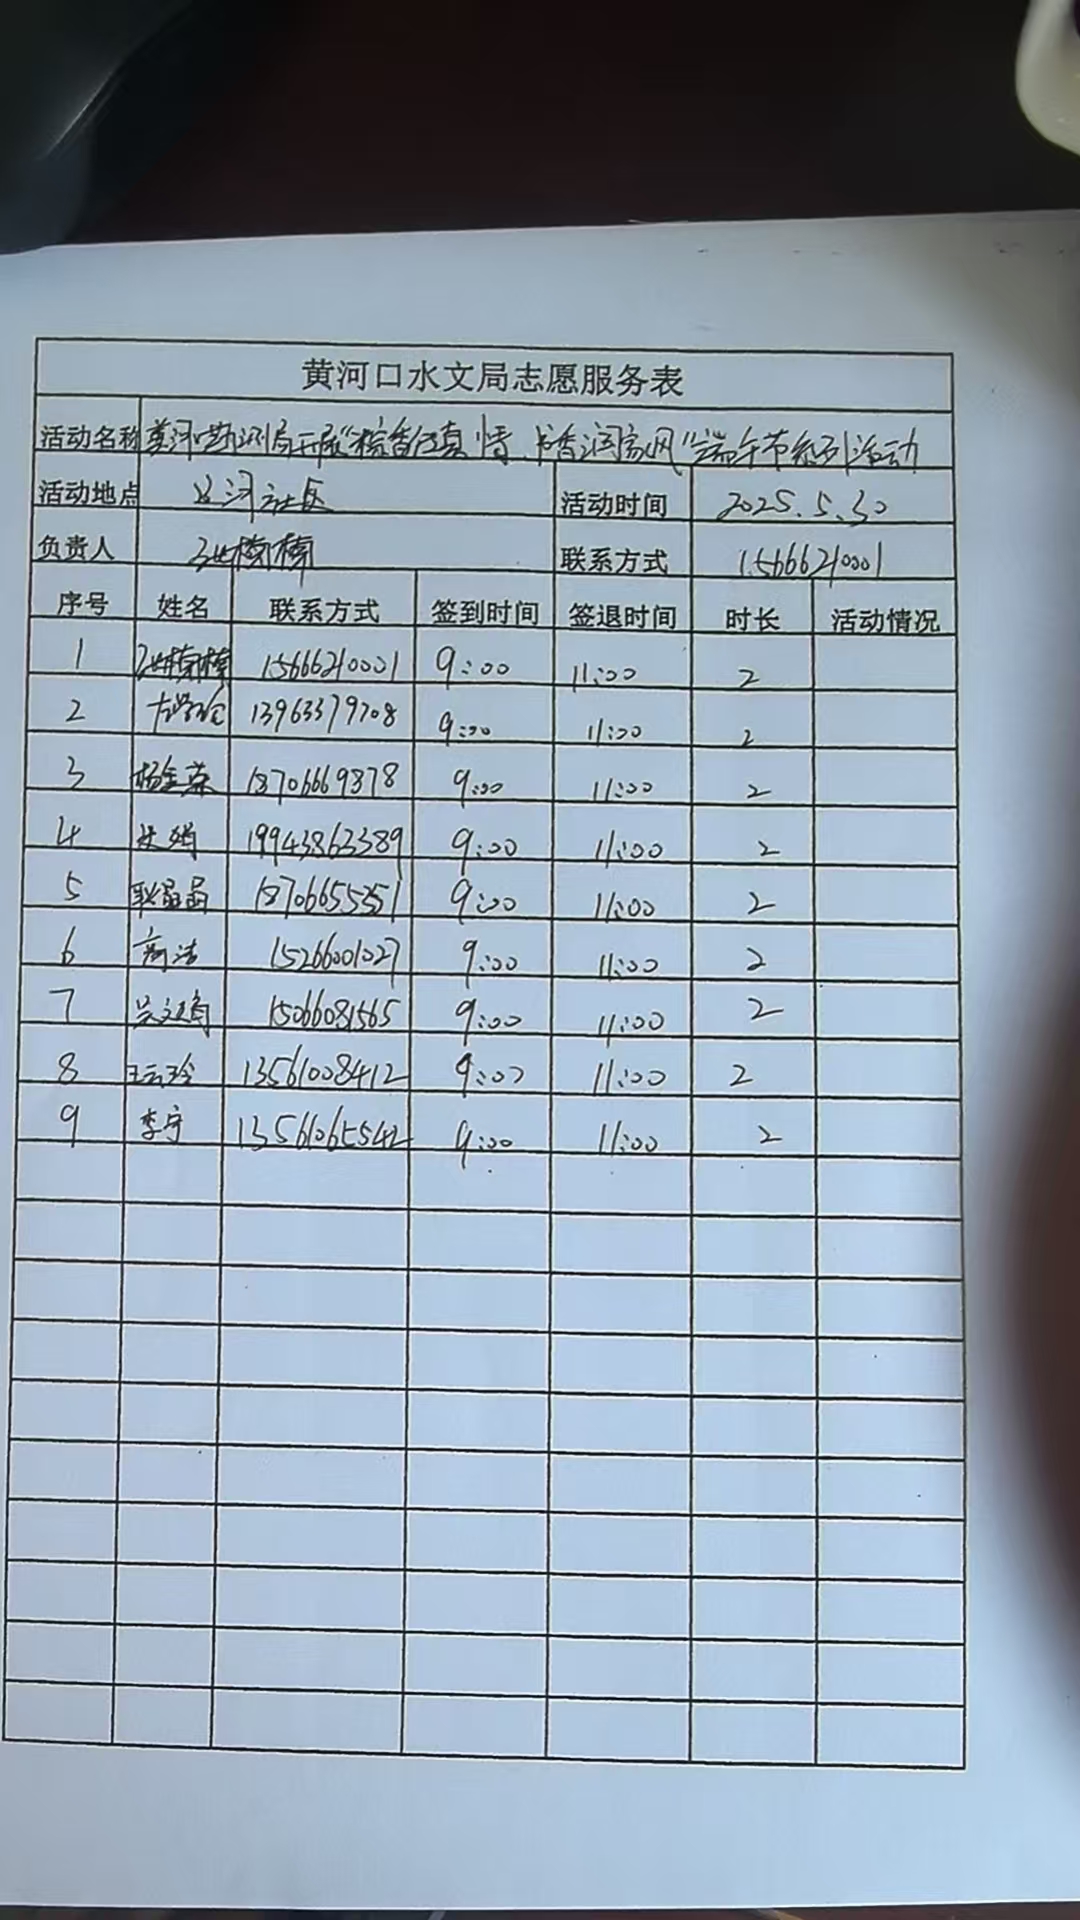 黄河口水文局志愿服务表
活动名称 黄河口勘测局开展"粽香传真情、书香润家风"端午节系列活动
活动地点 社区 活动时间 2025.5.30
负责人 楠楠 联系方式 15666210001
序号 姓名 联系方式 签到时间 签退时间 时长 活动情况
1 楠楠 15666210001 9:00 11:00 2
2 13963379708 9:00 11:00 2
3 杨金荣 18706669378 9:00 11:00 2
4 19943863389 9:00 11:00 2
5 耿晶晶 18706655351 9:00 11:00 2
6 商洁 15266001027 9:00 11:00 2
7 吴文娟 15066081565 9:00 11:00 2
8 王云玲 13561008412 9:00 11:00 2
9 李宁 13561065542 9:00 11:00 2